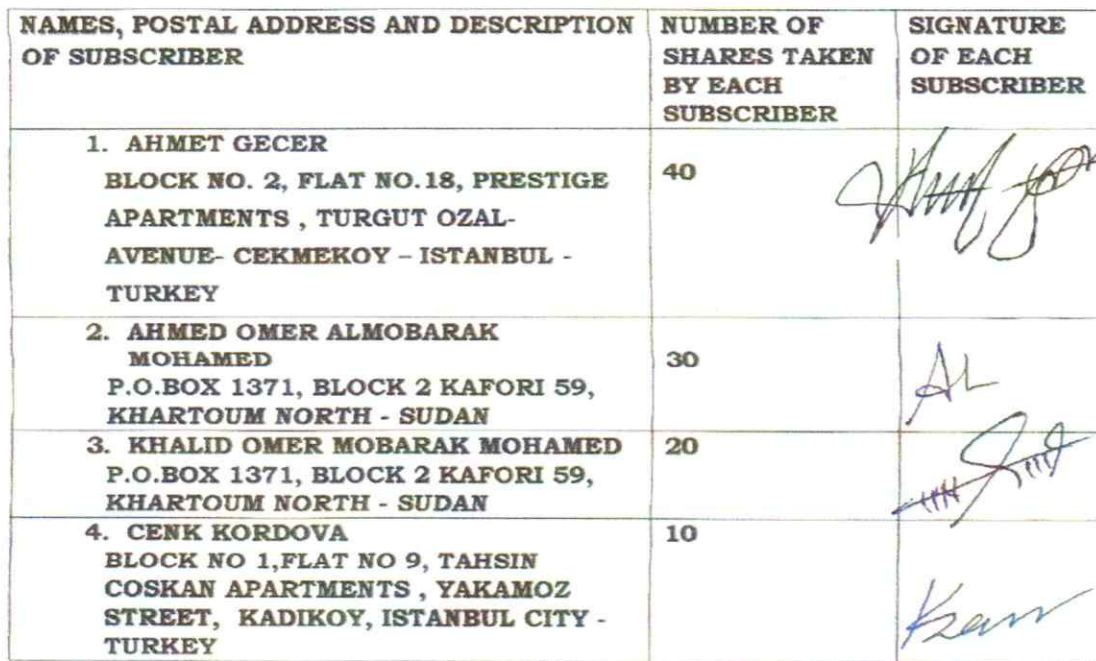 NAMES, POSTAL ADDRESS AND DESCRIPTION
OF SUBSCRIBER
NUMBER OF
SHARES TAKEN
BY EACH
SUBSCRIBER
SIGNATURE
OF EACH
SUBSCRIBER
1. AHMET GECER
BLOCK NO. 2, FLAT NO.18, PRESTIGE
APARTMENTS , TURGUT OZAL-
AVENUE- CEKMEKOY – ISTANBUL -
TURKEY
40
2. AHMED OMER ALMOBARAK
MOHAMED
P.O.BOX 1371, BLOCK 2 KAFORI 59,
KHARTOUM NORTH - SUDAN
30
3. KHALID OMER MOBARAK MOHAMED
P.O.BOX 1371, BLOCK 2 KAFORI 59,
KHARTOUM NORTH - SUDAN
20
4. CENK KORDOVA
BLOCK NO 1,FLAT NO 9, TAHSIN
COSKAN APARTMENTS , YAKAMOZ
STREET, KADIKOY, ISTANBUL CITY -
TURKEY
10